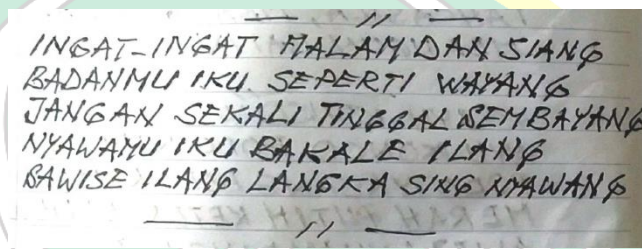 INGAT-INGAT MALAM DAN SIANG
BADANMU IKU SEPERTI WAYANG
JANGAN SEKALI TINGGAL SEMBAYANG
NYAWAMU IKU BAKALE ILANG
BAWISE ILANG LANGKA SING NYAWANG